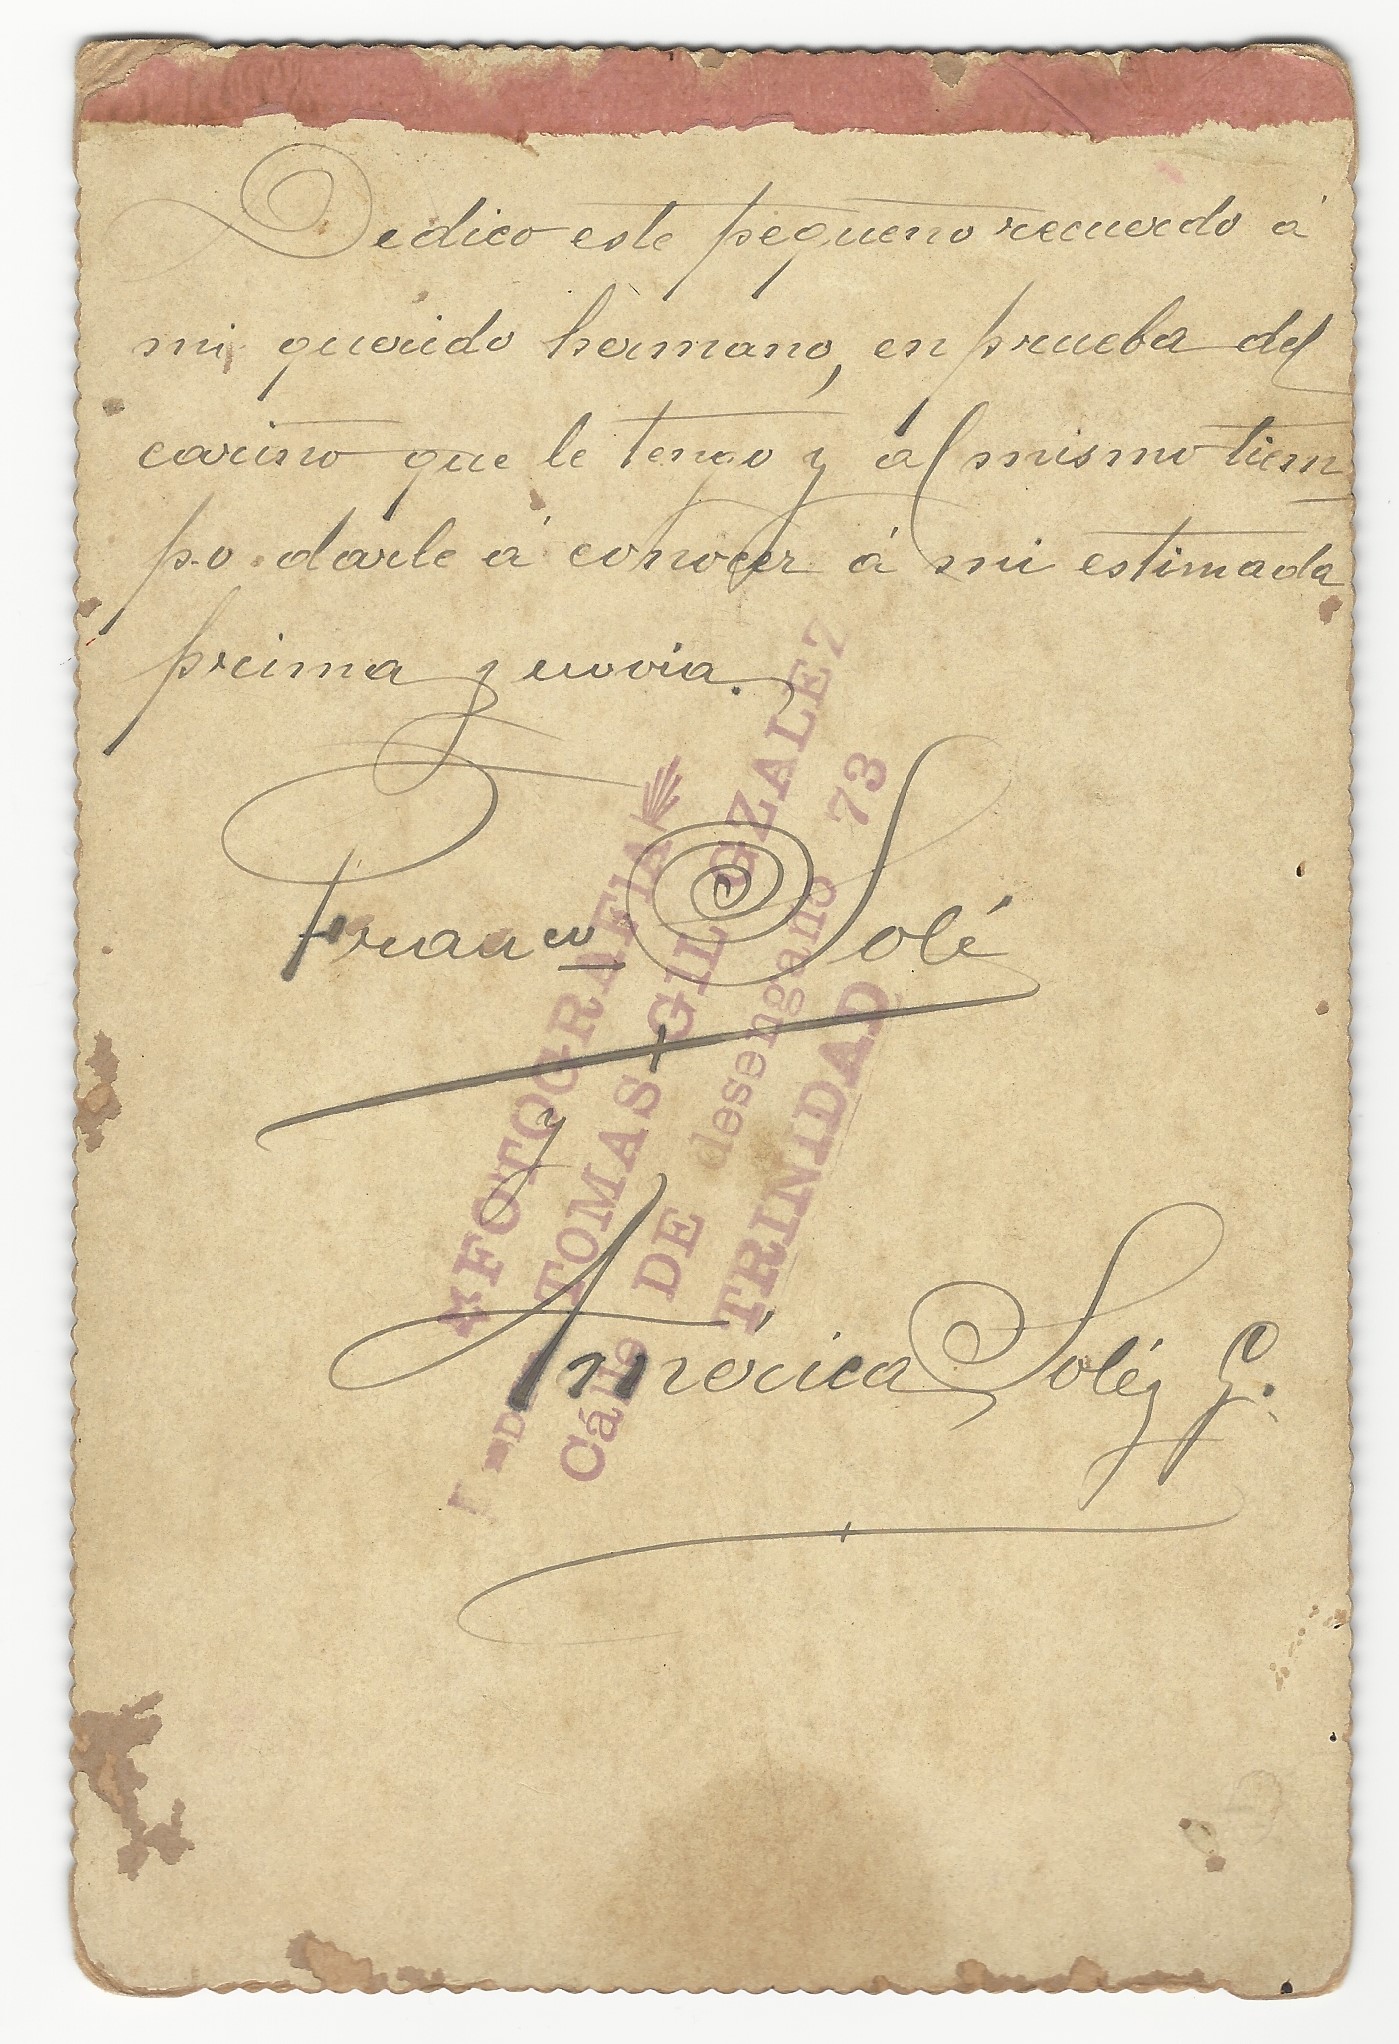 Dedico este pequeño recuerdo á
mi querido hermano, en prueba del
cariño que le tengo y al mismo tiem
po darle á conocer á mi estimada
prima y novia.
Franco Solé
y
América Solé y G.
FOTOGRAFIA
DE TOMAS GIL GZALEZ
Cálle DE desengano 73
TRINIDAD